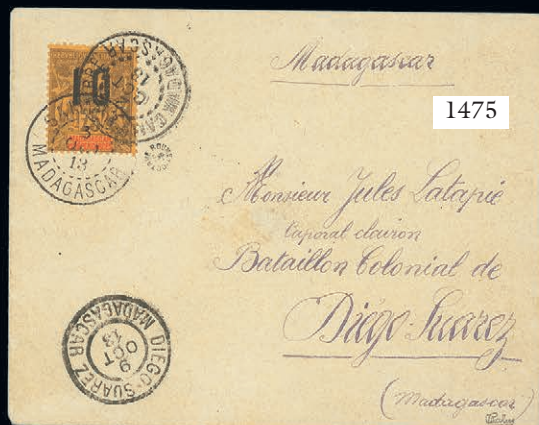 Madagascar
1475
10
MADAGASCAR
13
Monsieur Jules Latapie
Caporal clairon
Bataillon Colonial de
Diégo-Suarez
(Madagascar)
DIEGO-SUAREZ MADAGASCAR
9
OCT
13